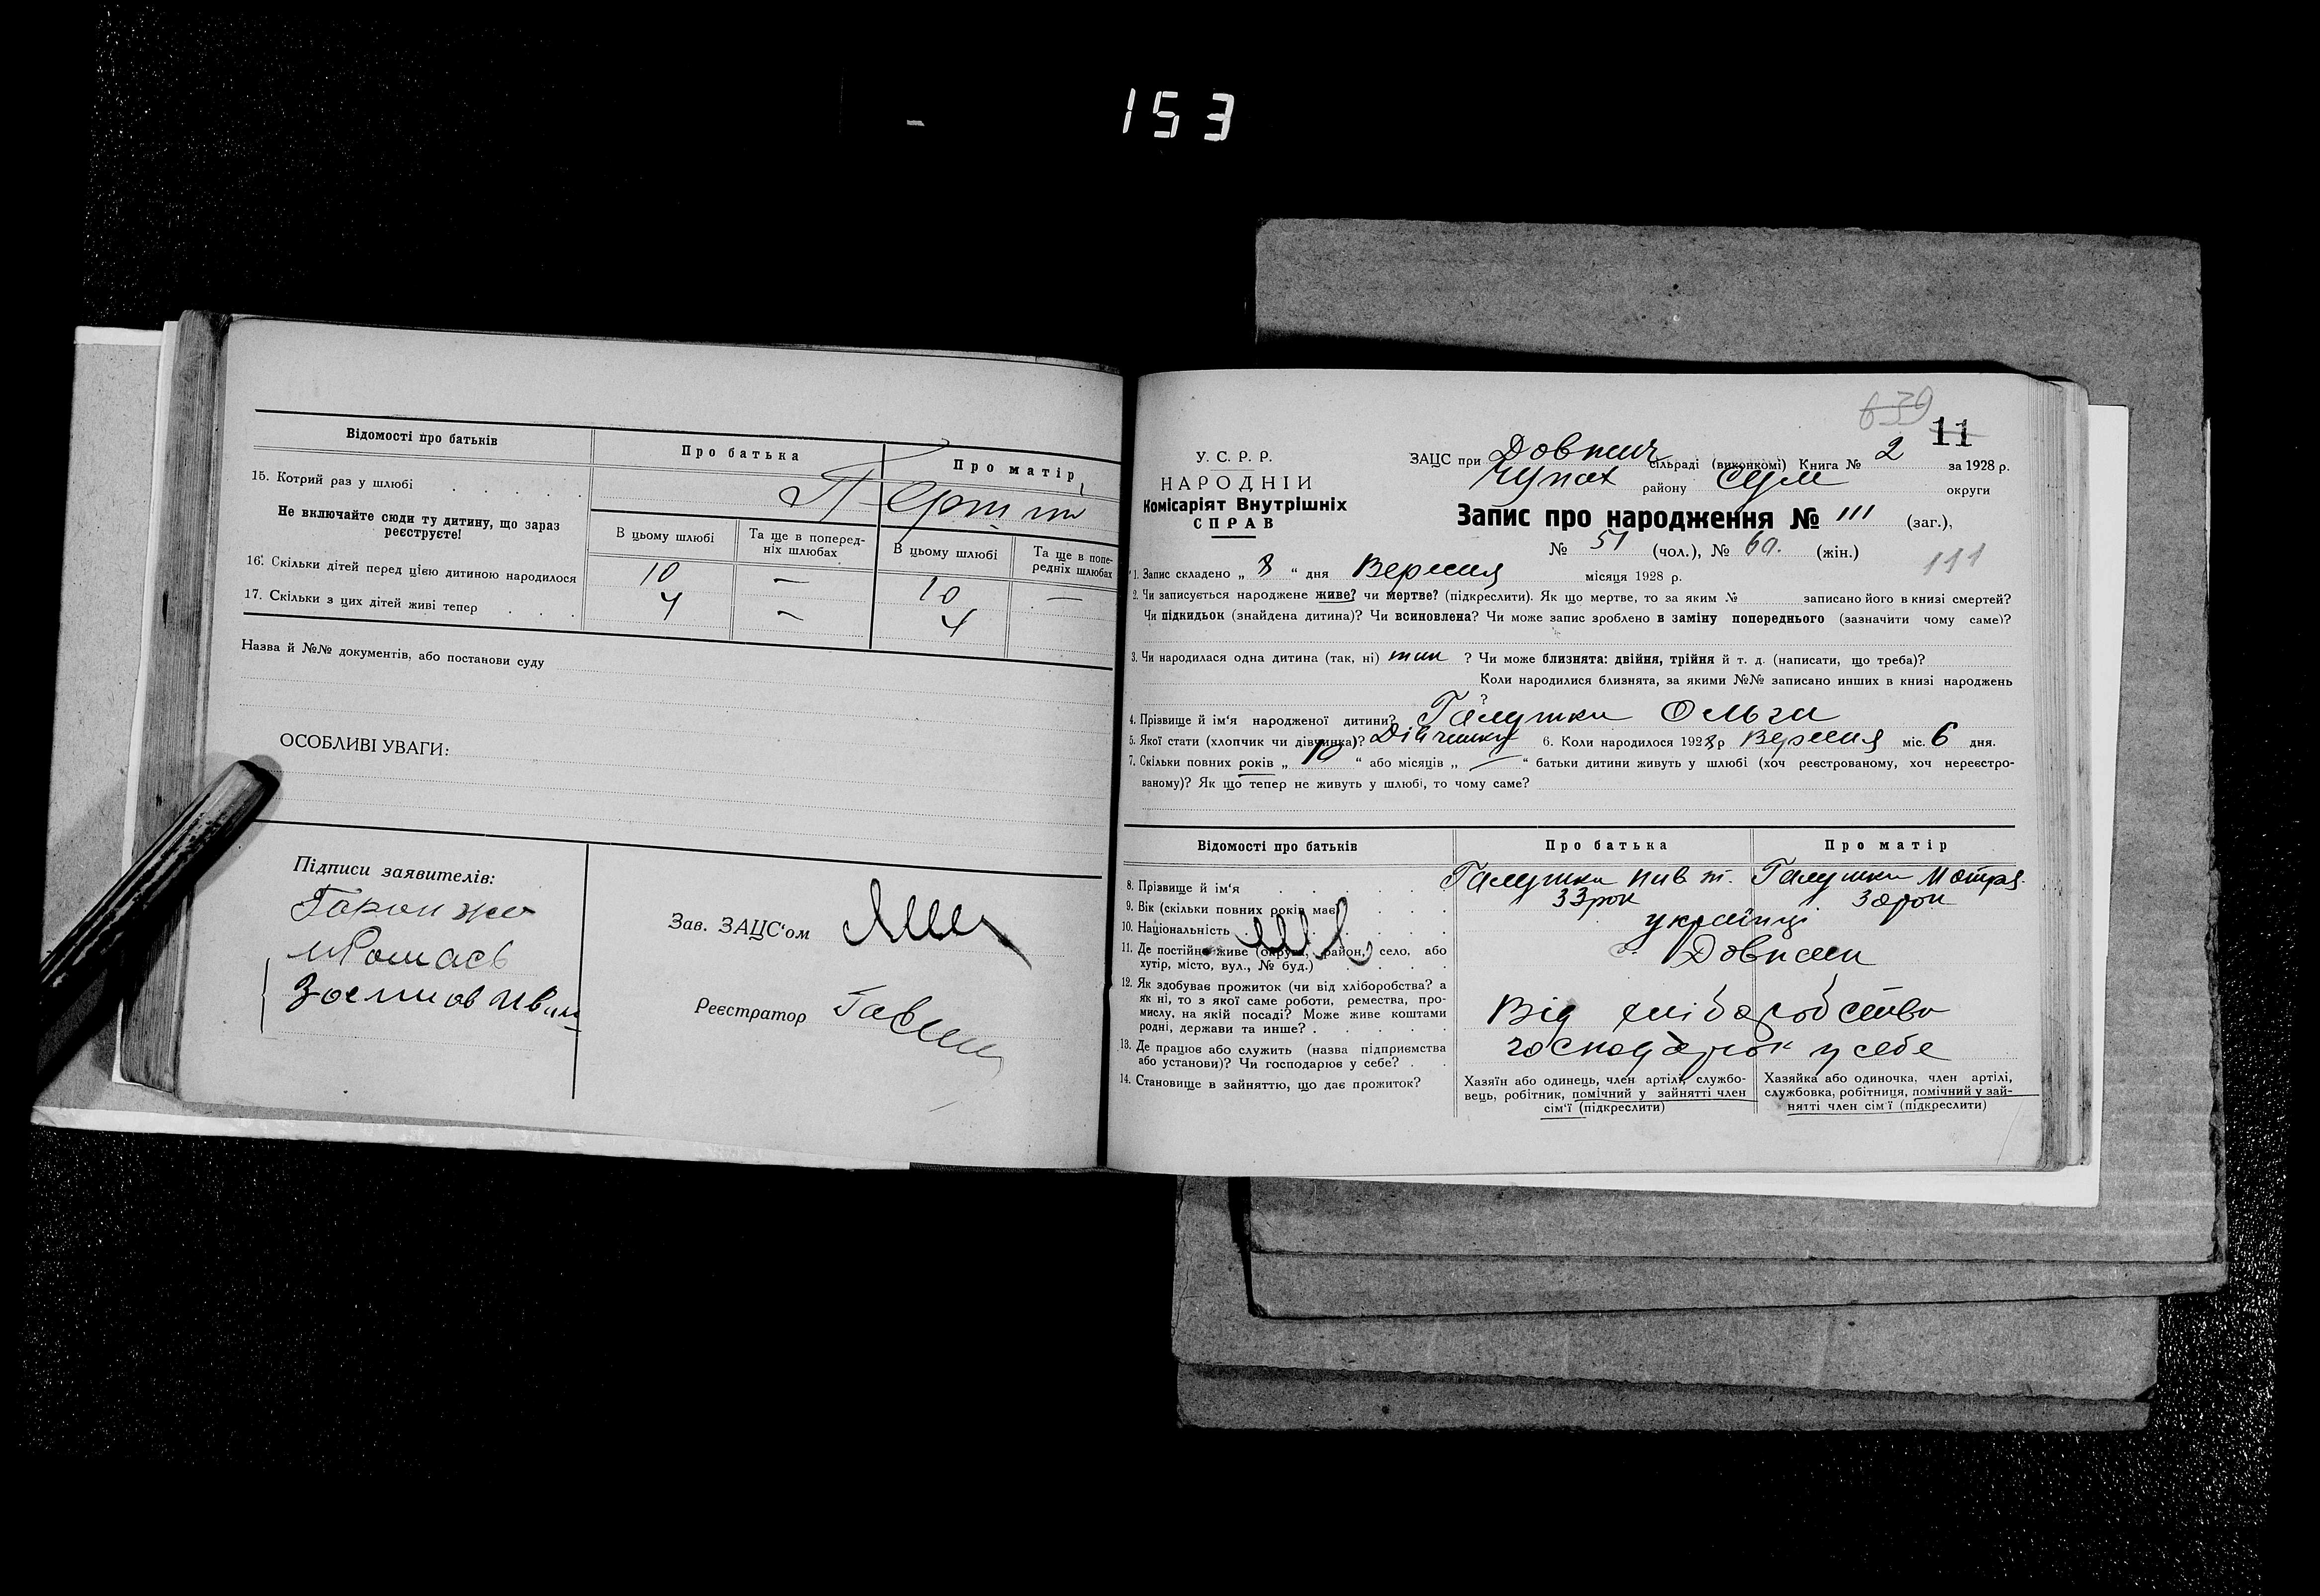 153
Відомості про батьків
Про батька
Про матір
15. Котрий раз у шлюбі
Не включайте сюди ту дитину, що зараз реєструєте!
В цьому шлюбі
Та ще в поперед-
ніх шлюбах
В цьому шлюбі
Та ще в попе-
редніх шлюбах
16. Скільки дітей перед цією дитиною народилося 10 — 10 —
17. Скільки з цих дітей живі тепер 4 — 4
Назва й №№ документів, або постанови суду
ОСОБЛИВІ УВАГИ:
Підписи заявителів:
Зав. ЗАЦС'ом
Реєстратор
639
11
У. С. Р. Р.
НАРОДНІЙ
Комісаріят Внутрішніх
СПРАВ
ЗАЦС при сільраді (виконкомі) Книга № 2 за 1928 р.
району Сум округи
Запис про народження № 111 (заг.),
№ 51 (чол.), № 60. (жін.)
111
1. Запис складено „ 8 “ дня Вересня місяця 1928 р.
2. Чи записується народжене живе? чи мертве? (підкреслити). Як що мертве, то за яким № записано його в книзі смертей?
Чи підкидьок (знайдена дитина)? Чи всиновлена? Чи може запис зроблено в заміну попереднього (зазначити чому саме)?
3. Чи народилася одна дитина (так, ні) так ? Чи може близнята: двійня, трійня й т. д. (написати, що треба)?
Коли народилися близнята, за якими №№ записано инших в книзі народжень
?
4. Прізвище й ім'я народженої дитини? Галушка Ольга
5. Якої стати (хлопчик чи дівчинка)? Дівчинка 6. Коли народилося 1928 р Вересня міс. 6 дня.
7. Скільки повних років „ 10 “ або місяців „ — “ батьки дитини живуть у шлюбі (хоч реєстрованому, хоч нереєстро-
ваному)? Як що тепер не живуть у шлюбі, то чому саме?
Відомості про батьків
Про батька
Про матір
8. Прізвище й ім'я Галушка Галушка Мотря
9. Вік (скільки повних років має) 33 рок 30 рок
10. Національність українці
11. Де постійно живе (округа, район, село, або
хутір, місто, вул., № буд.)
12. Як здобуває прожиток (чи від хліборобства? а
як ні, то з якої саме роботи, ремества, про-
мислу, на якій посаді? Може живе коштами
родні, держави та инше?
Від хліборобства
13. Де працює або служить (назва підприємства
або установи)? Чи господарює у себе?
господарює у себе
14. Становище в зайняттю, що дає прожиток?
Хазяїн або одинець, член артілі, службо-
вець, робітник, помічний у зайнятті член
сім'ї (підкреслити)
Хазяйка або одиночка, член артілі,
службовка, робітниця, помічний у зай-
нятті член сім'ї (підкреслити)